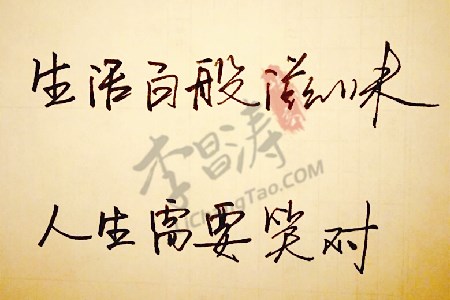 生活百般滋味
李昌涛
LiChangTao.COM
人生需要笑对